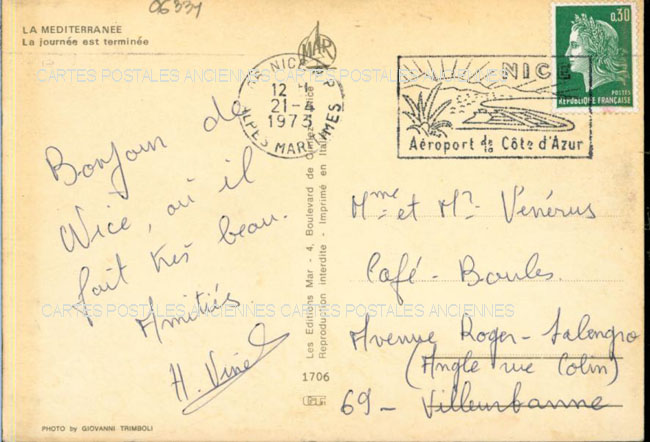 06334
LA MEDITERRANEE
La journée est terminée
MAR
NICE
12 - 
21-4
1973
ALPES MARITIMES
NICE
Aéroport de la Côte d'Azur
0,30
POSTES
REPUBLIQUE FRANÇAISE
CARTES POSTALES ANCIENNES CARTES POSTALES ANCIENNES
Bonjour de
Nice, où il
fait très beau.
Amitiés
H. Vinel
Les Editions Mar - 4, Boulevard de
Reproduction interdite - Imprimé en Italie
1706
Mme et Mr Vénérus
Café-Boules.
Avenue Roger-Salengro
(Angle rue Colin)
69- Villeurbanne
CARTES POSTALES ANCIENNES CARTES POSTALES ANCIENNES
PHOTO by GIOVANNI TRIMBOLI